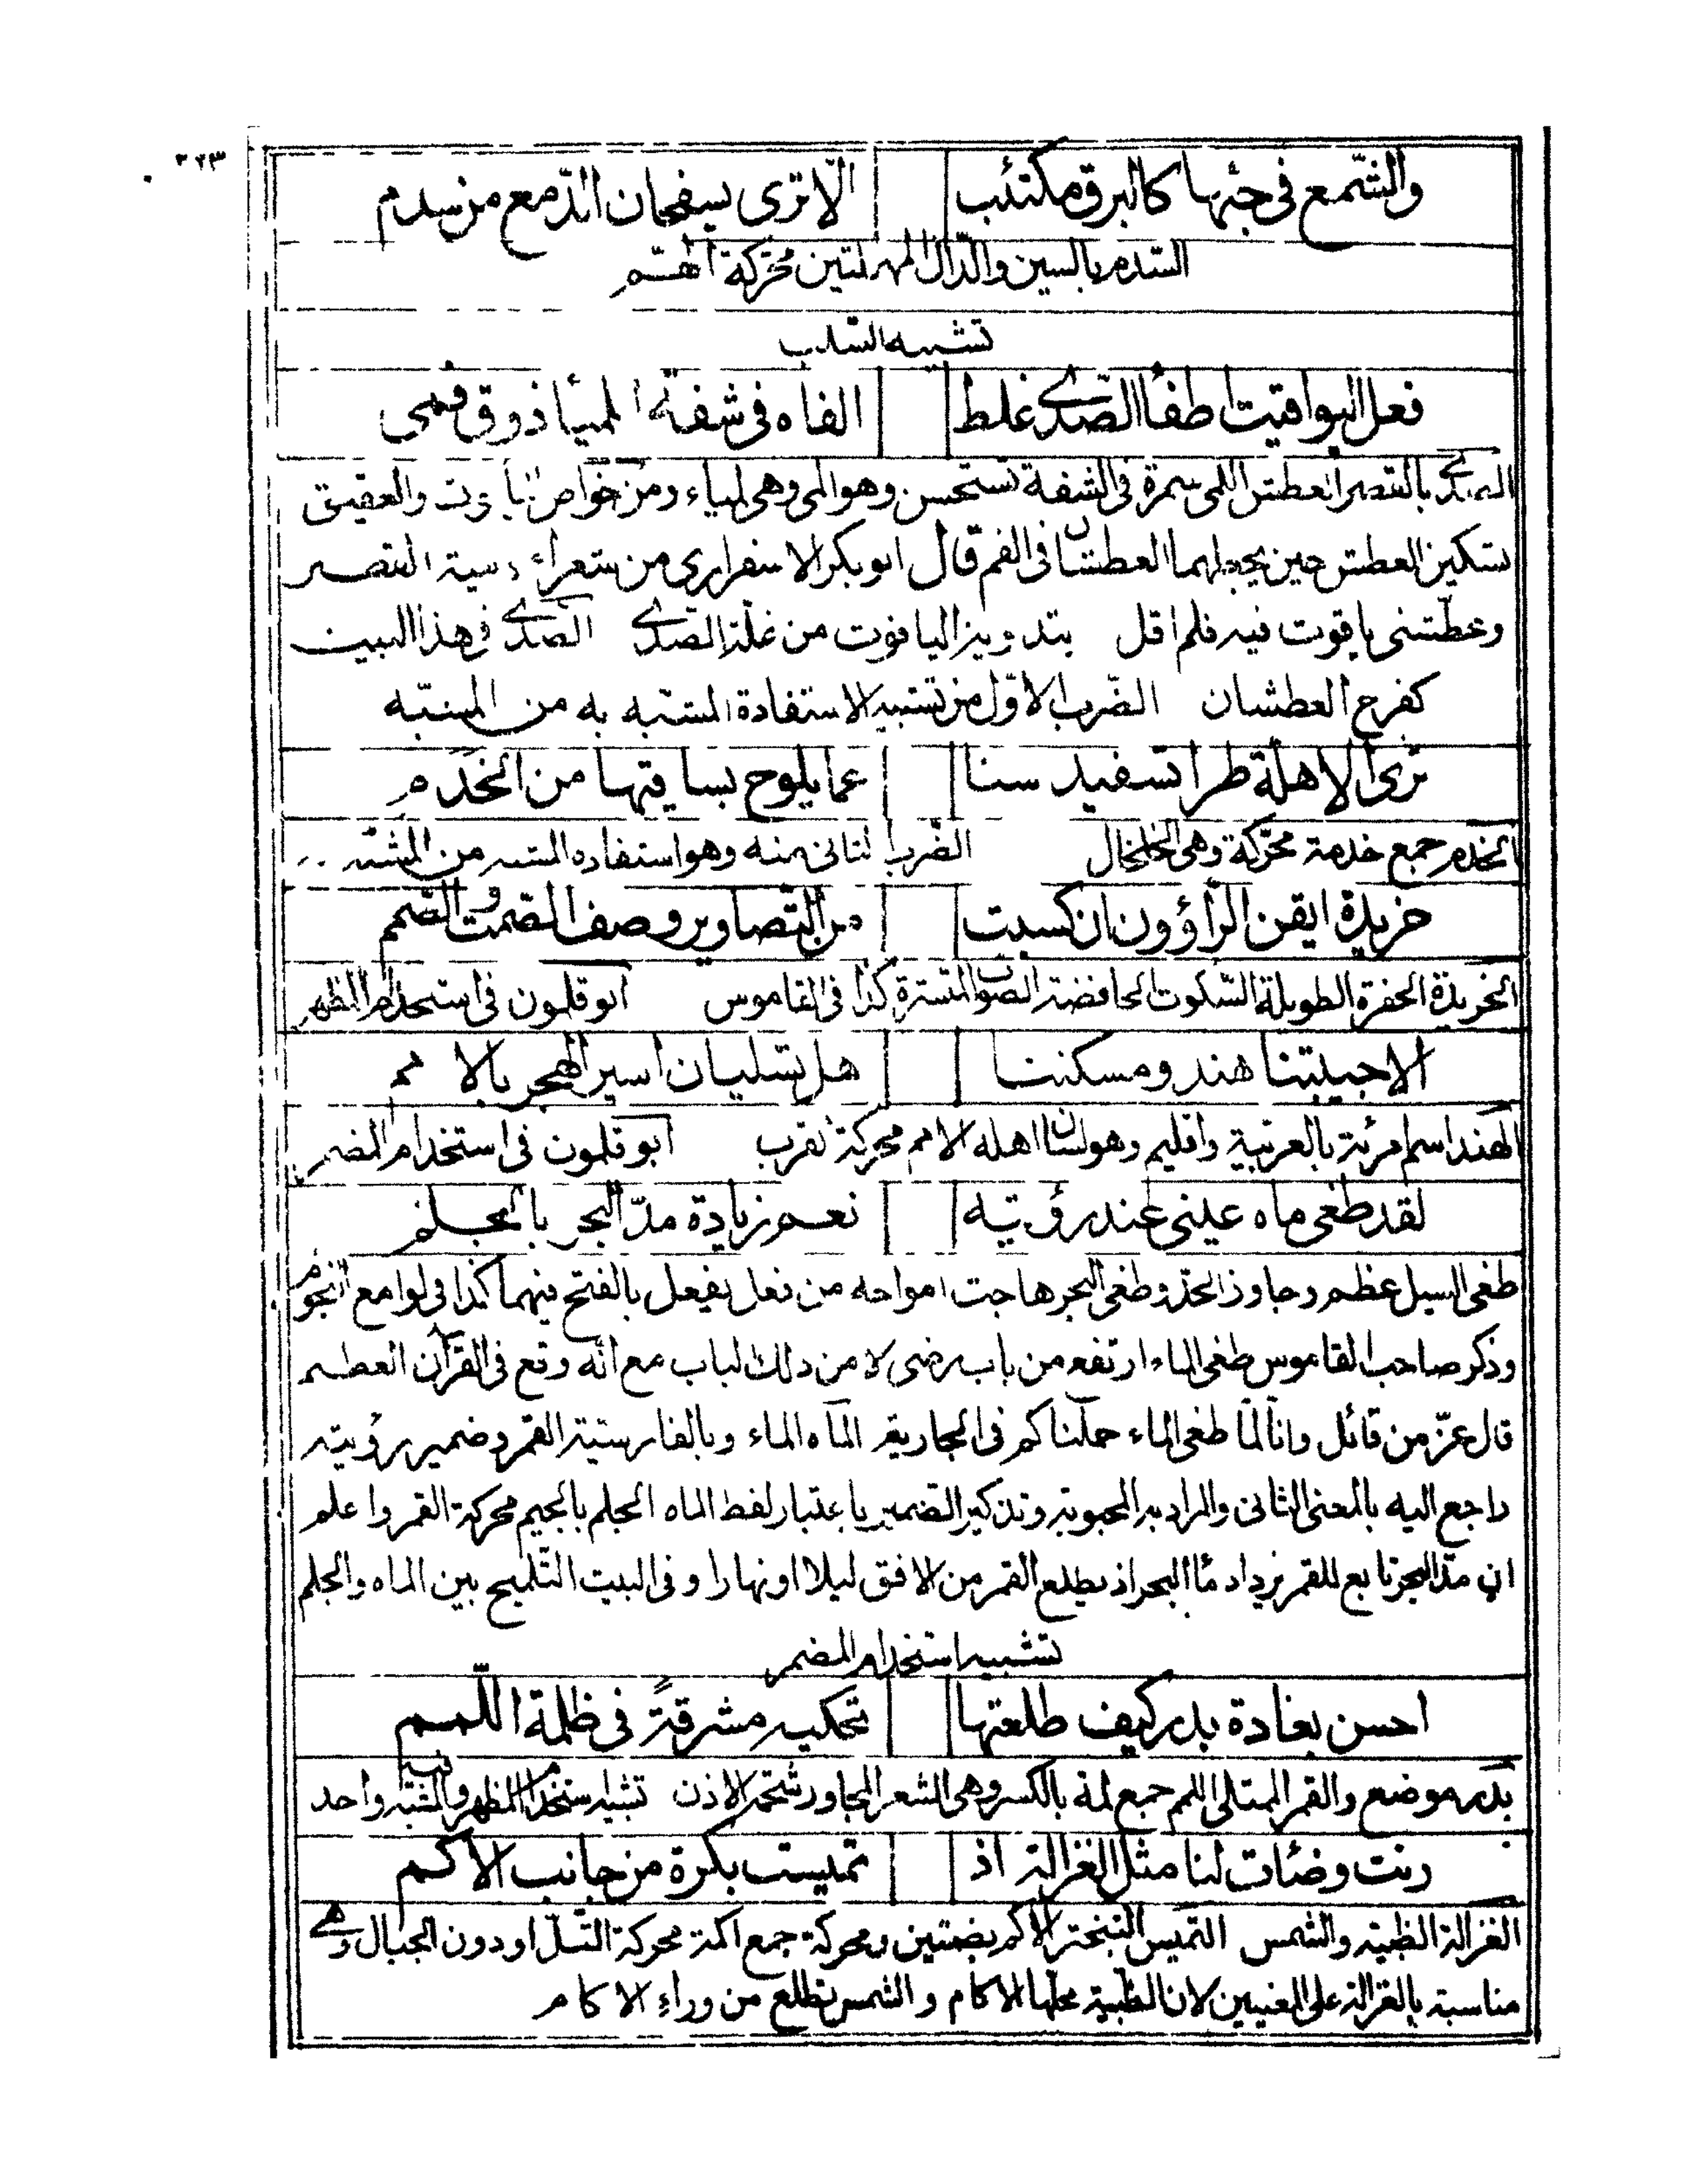 ٣٢٣
والشّمع في جنبها كالبرق مكتئب الا ترى يسفحان الدّمع من سدم
السّدم بالسين والدّال المهملتين محرّكة الهمّ
تشبيه السلب
فعل اليواقيت اطفأ الصّدى غلط الفاه في شفة لمياء ذوق فمي
الصّدى بالقصر العطش اللمى سمرة في الشفة تستحسن وهو المى وهي لمياء ومن خواص الياقوت والعقيق
تسكين العطش حين يجعلهما العطشان في الفم قال ابو بكر الاسفرارى من شعراء دمية القصر
وعطّشنى ياقوت فيه فلم اقل بتدويز الياقوت من غلّة الصّدى الصّدى في هذا البيت
كفرح العطشان الضّرب الاوّل من تشبيه الاستفادة المشبه به من المشبّه
ترى الاهلّة طرا تسفيد سنا عما يلوح بساقيها من الخدم
الخدم جمع خدمة محرّكة وهي الخلخال الضّرب الثاني منه وهو استفاده المشبه من المشبّه
خريدة ايقن الرّاؤون ان كسبت من التّصاوير وصف الصّمت والصّمم
الخريدة الخفرة الطويلة السّكوت الخافضة الصوت المتسترة كذا في القاموس ابو قلمون في استخدام المظهر
الا حبيبتنا هند ومسكننا هل تسليان اسير الهجر بالامم
الهند اسم امرئة بالعربية واقليم وهو لسان اهله الامم محركة القرب ابو قلمون في استخدام المضمر
لقد طغى ماه عينى عند رؤيته نعم زيادة مدّ البحر بالجلم
طغى السيل عظم وجاوز الحدّ وطغى البحر هاجت امواجه من فعل يفعل بالفتح فيهما كذا في لوامع النجوم
وذكر صاحب القاموس طغى الماء ارتفع من باب رضى لا من ذلك الباب مع انّه وقع في القرآن العظيم
قال عزّ من قائل وانّا لمّا طغى الماء حملناكم في الجارية الماه الماء وبالفارسيّة القمر وضمير رؤيته
راجع اليه بالمعنى الثانى والمراد به المحبوبة وتذكير الضمير باعتبار لفظ الماه الجلم بالجيم محركة القمر واعلم
ان مدّ البحر تابع للقمر يزداد ماء البحر اذ يطلع القمر من الافق ليلا او نهارا وفي البيت التّلميح بين الماه والجلم
تشبيه استخدام المضمر
احسن بغادة بدر كيف طلعتها تحكيه مشرقةً في ظلمة اللّمم
بدر موضع والقمر الممتلى اللمم جمع لمة بالكسر وهي الشعر المجاور شحمة الاذن تشبيه استخدام المظهر والمشبّه فيه واحد
رنت وضئات لنا مثل الغزالة اذ تميست بكرة من جانب الاكم
الغزالة الظبية والشمس التميس التبختر الاكم بضمتين ومحركة جمع اكمة محركة التلّ او دون الجبال وهى
مناسبة بالغزالة على المعنيين لان الظبية محلها الاكام والشمس تطلع من وراء الاكام